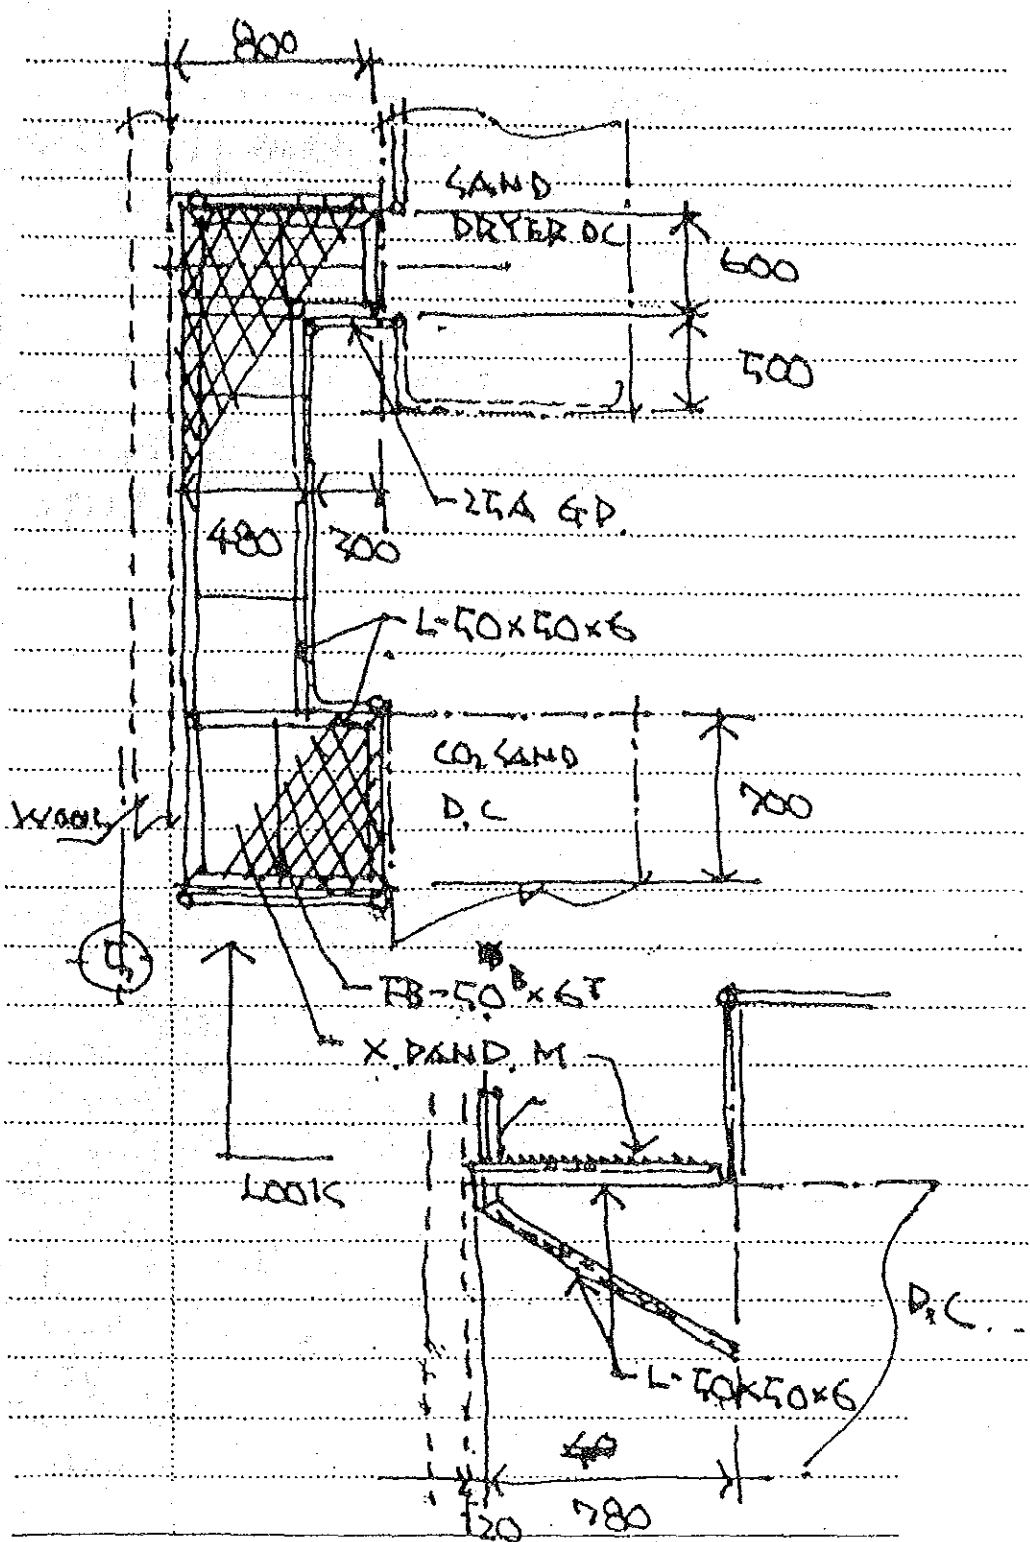 800
SAND
DRYER DC
600
500
25A GP.
480 300
L-50×50×6
CO2 SAND
D.C
700
FB-50B×6T
X.PAND.M
LOOK
D.C..
L-50×50×6
20
780